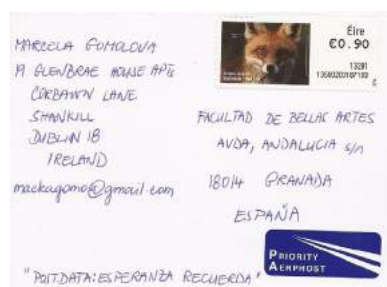 MARCELA GOMOLOVA
GLENBRAE HOUSE APTS
CORBAWN LANE
SHANKILL
DUBLIN 18
IRELAND
mackagomo@gmail.com
Éire
€0.90
13281
FACULTAD DE BELLAS ARTES
AVDA, ANDALUCIA s/n
18014 GRANADA
ESPAÑA
PRIORITY
AERPHOST
"POSTDATA:ESPERANZA RECUERDA"